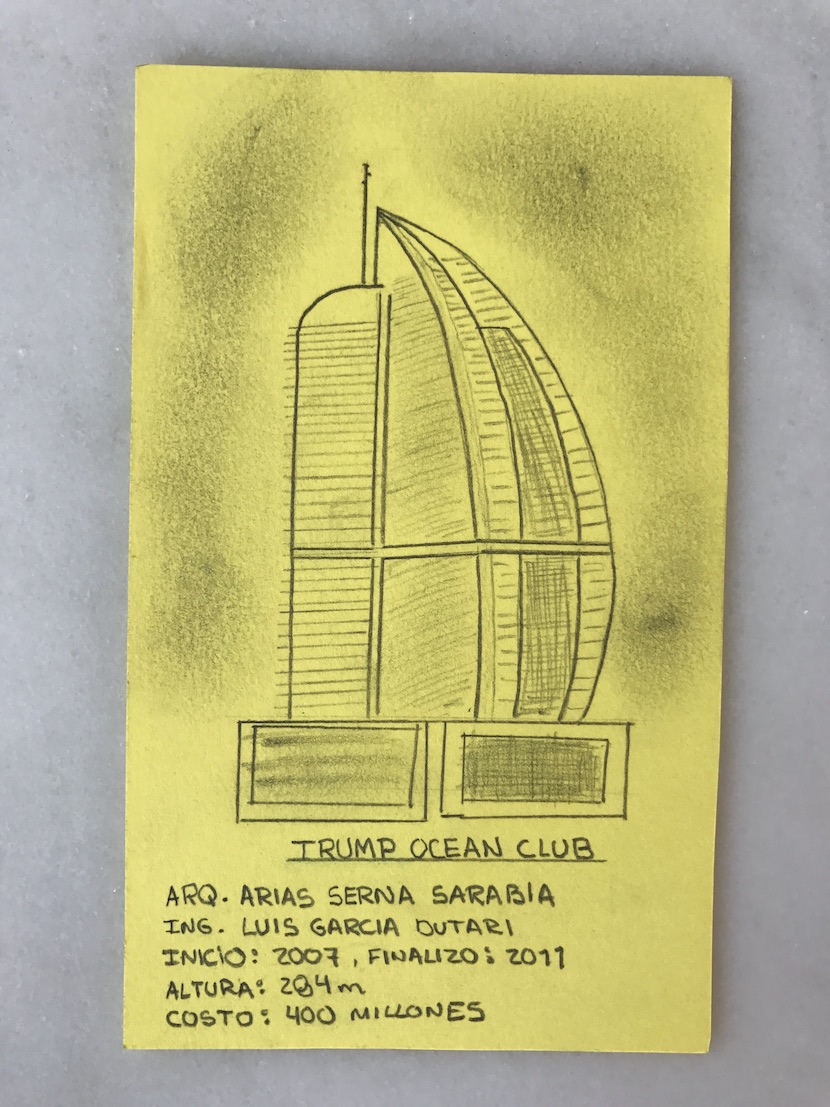 TRUMP OCEAN CLUB
ARQ. ARIAS SERNA SARABIA
ING. LUIS GARCIA DUTARI
INICIO: 2007, FINALIZO: 2011
ALTURA: 284m
COSTO: 400 MILLONES